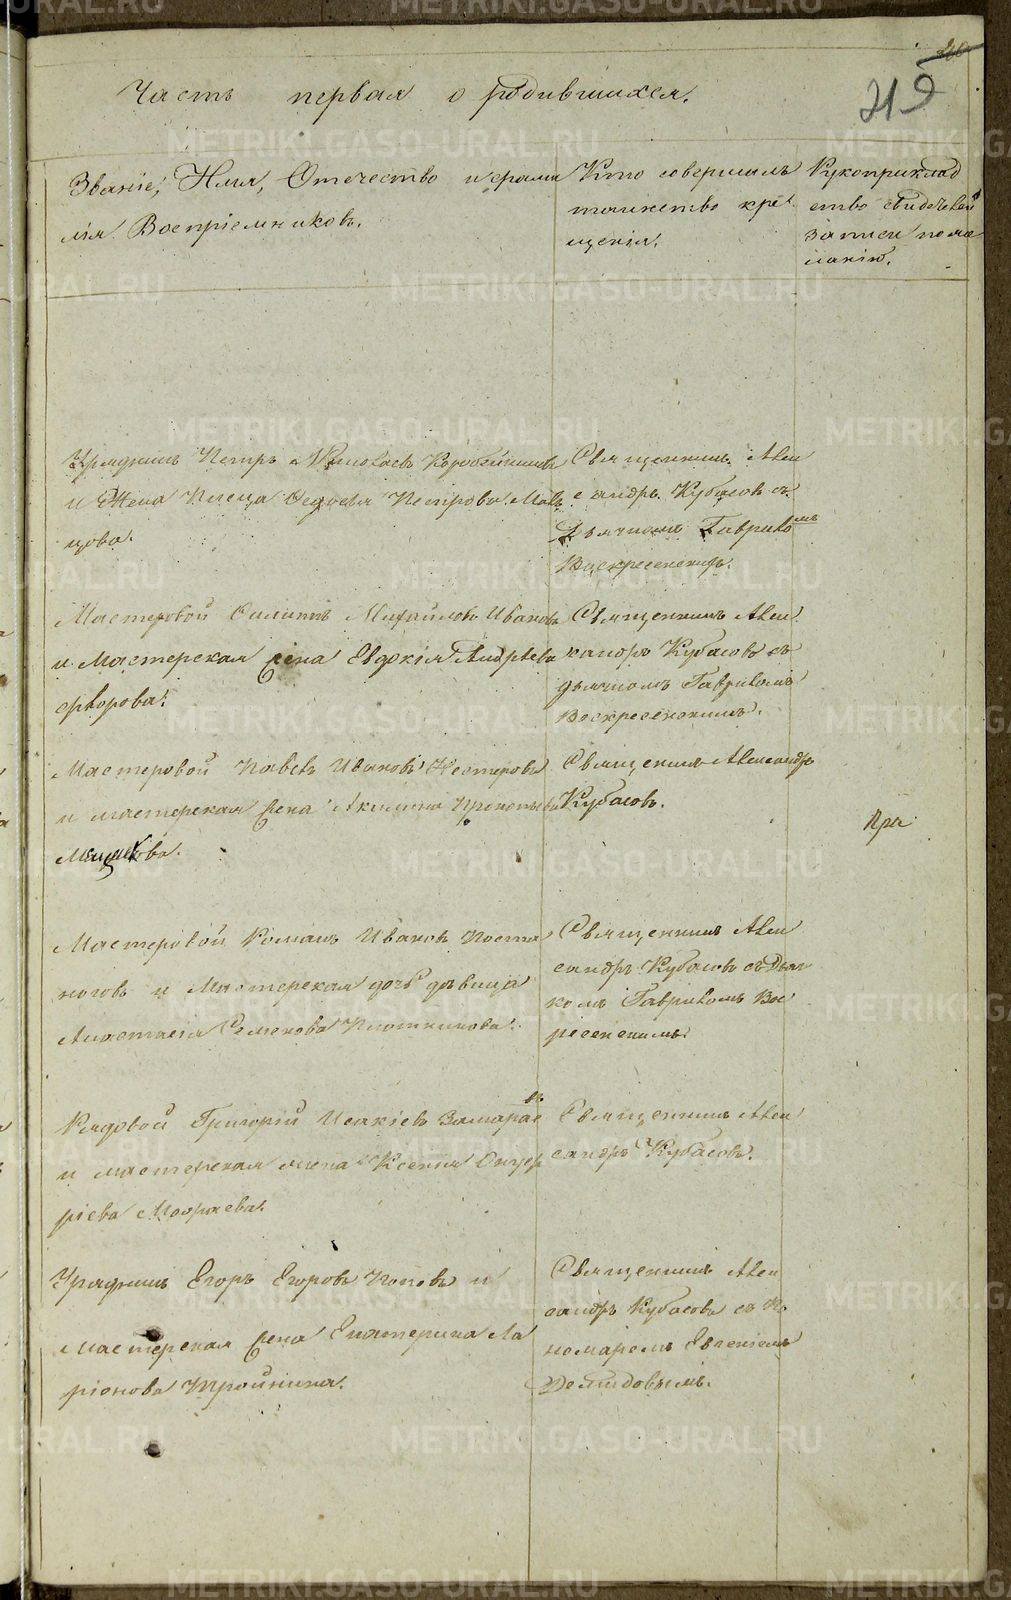 Часть первая о родившихся.
219
Званіе, Имя, Отчество и фами
лія Воспріемниковъ.
Кто совершалъ
таинство кре
щенія.
Рукоприклад
ство свидетелей
записи по же
ланію.
Урядникъ Петръ Коробейниковъ
и Жена Писца Федосья Петрова
Священникъ Алек
сандръ Кубасовъ съ
Дьячкомъ Гавриломъ
Воскресенскимъ.
Мастеровой Филиппъ Михайловъ Ивановъ
и Мастерская жена Евдокія Андреева
Священникъ Алек
сандръ Кубасовъ съ
дьячкомъ Гавриломъ
Воскресенскимъ.
Мастеровой Павелъ Ивановъ Нестеровъ
и мастерская жена Акилина Прокопьева
Священникъ Александръ
Кубасовъ.
Мастеровой Романъ Ивановъ Поста
ноговъ и Мастерская дочь девица
Анастасія Семенова Плотникова.
Священникъ Алек
сандръ Кубасовъ съ Дьяч
комъ Гавриломъ Вос
ресенскимъ.
Рядовой Григорій Исакіевъ Замараевъ
и мастерская жена Ксенія
Священникъ Алек
сандръ Кубасовъ.
Урядникъ Егоръ Егоровъ Поповъ и
мастерская жена Екатерина Ла
ріонова Тройнина.
Священникъ Алек
сандръ Кубасовъ съ По
номаремъ Евгеніемъ
Демидовымъ.
METRIKI.GASO-URAL.RU